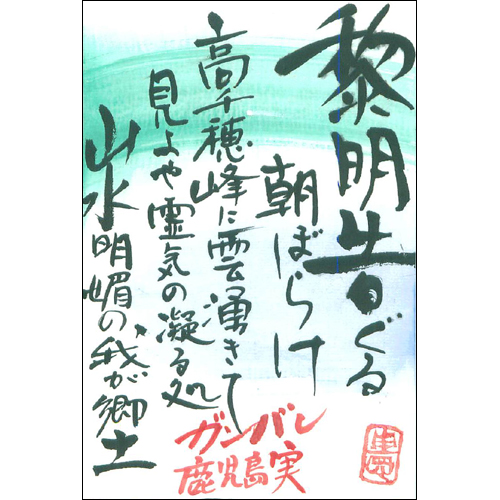 黎明告ぐる
朝ぼらけ
高千穂峰に雲湧きて
見よや霊気の凝る処
山水明媚の我が郷土
ガンバレ
鹿児島実